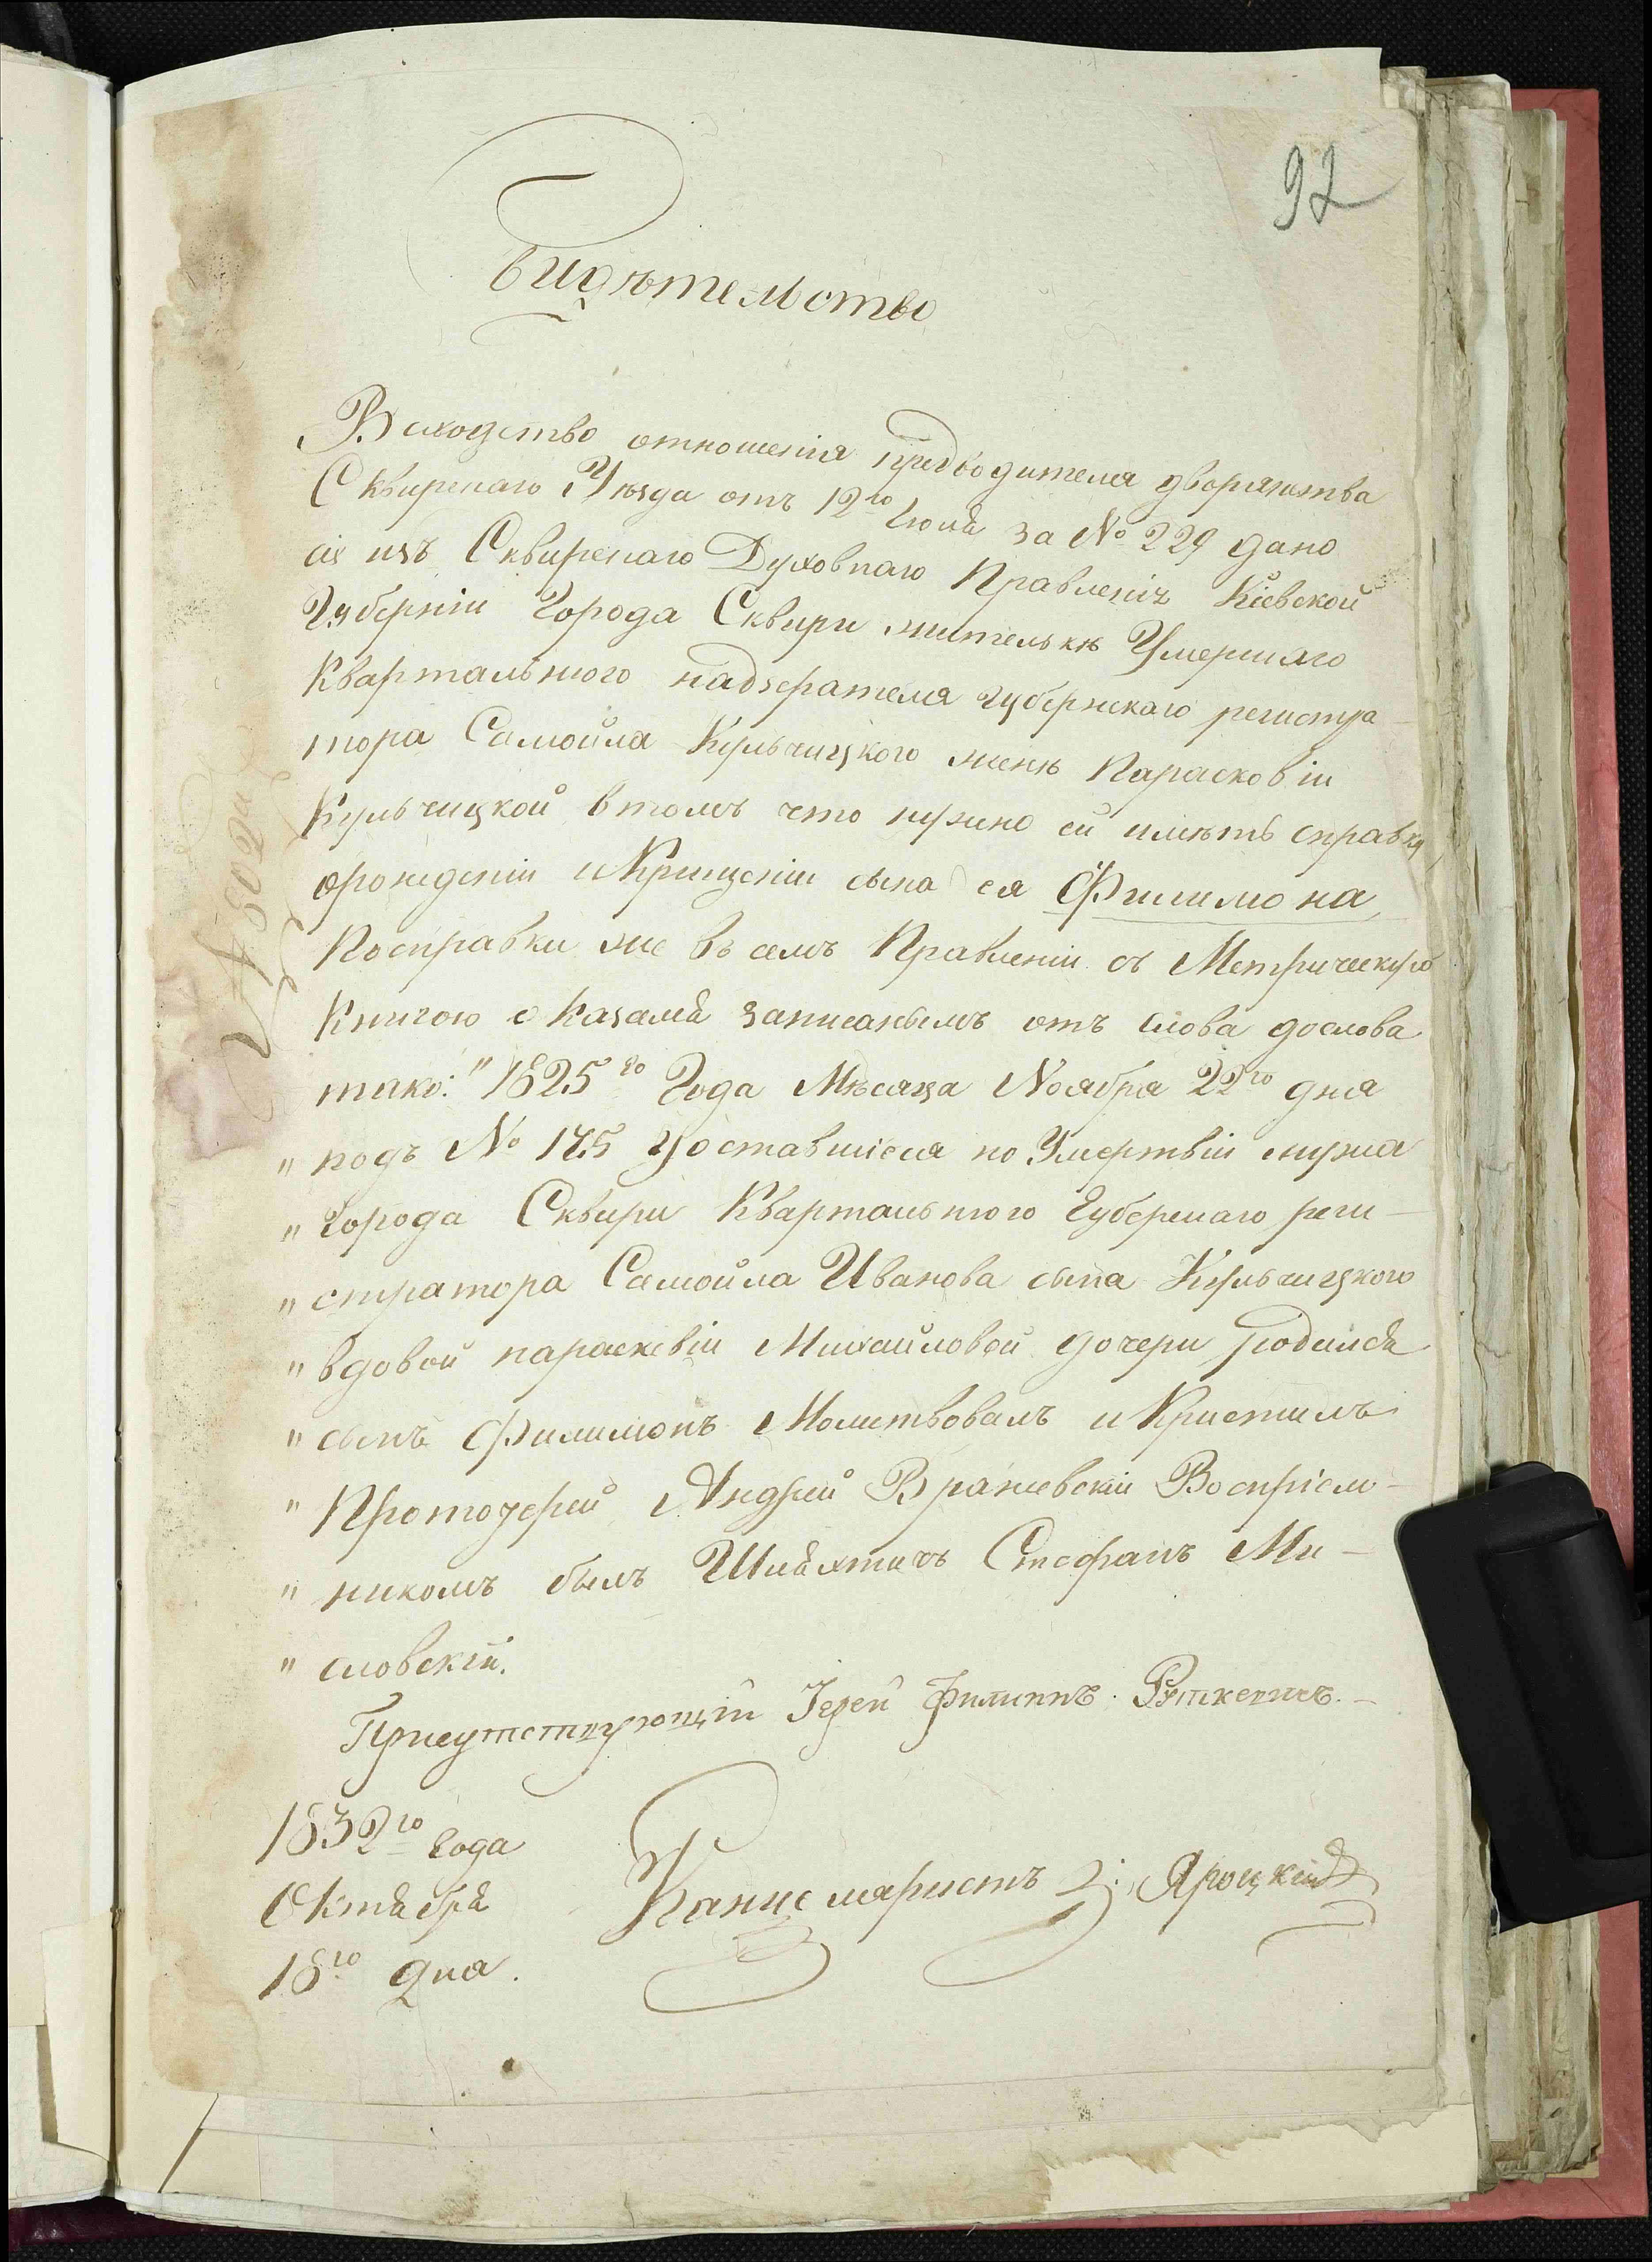 92
Свидѣтельство
Въ сходство отношенія предводителя дворянства
Сквирскаго Уѣзда отъ 12го Іюля за № 229 дано
сіе изъ Сквирскаго Духовнаго Правленія Кіевской
Губерніи Города Сквири жителькѣ Умершаго
Квартального надзерателя губернскаго регистра-
тора Самойла Кульчицкого женѣ Парасковіи
Кульчицкой в томъ что нужно ей имѣть справку
орождении и Крищеніи сына ея Филимона,
Посправки же въ семъ Правленіи съ Метрическую
Книгою оказался записанымъ отъ слова дослова
тако: "1825го Года Мѣсяца Ноября 22го дня
" подъ № 175 Уоставшіеся по Умертвіи мужа
" Города Сквири Квартального Губернскаго реги-
" стратора Самойла Иванова сына Кульчицкого
" вдовой параскевіи Михайловой дочери родился
" сынъ Филимонъ Молитвовалъ и Кристилъ
" Протоіерей Андрей Вражевскій Воспріем-
" никомъ былъ Шляхтичъ Стефанъ Ми-
" словскій.
Присутствующій Іерей Филиппъ Руткевичъ.-
1832го Года
Октября
18го Дня.
Канцеляристъ Яроцкій